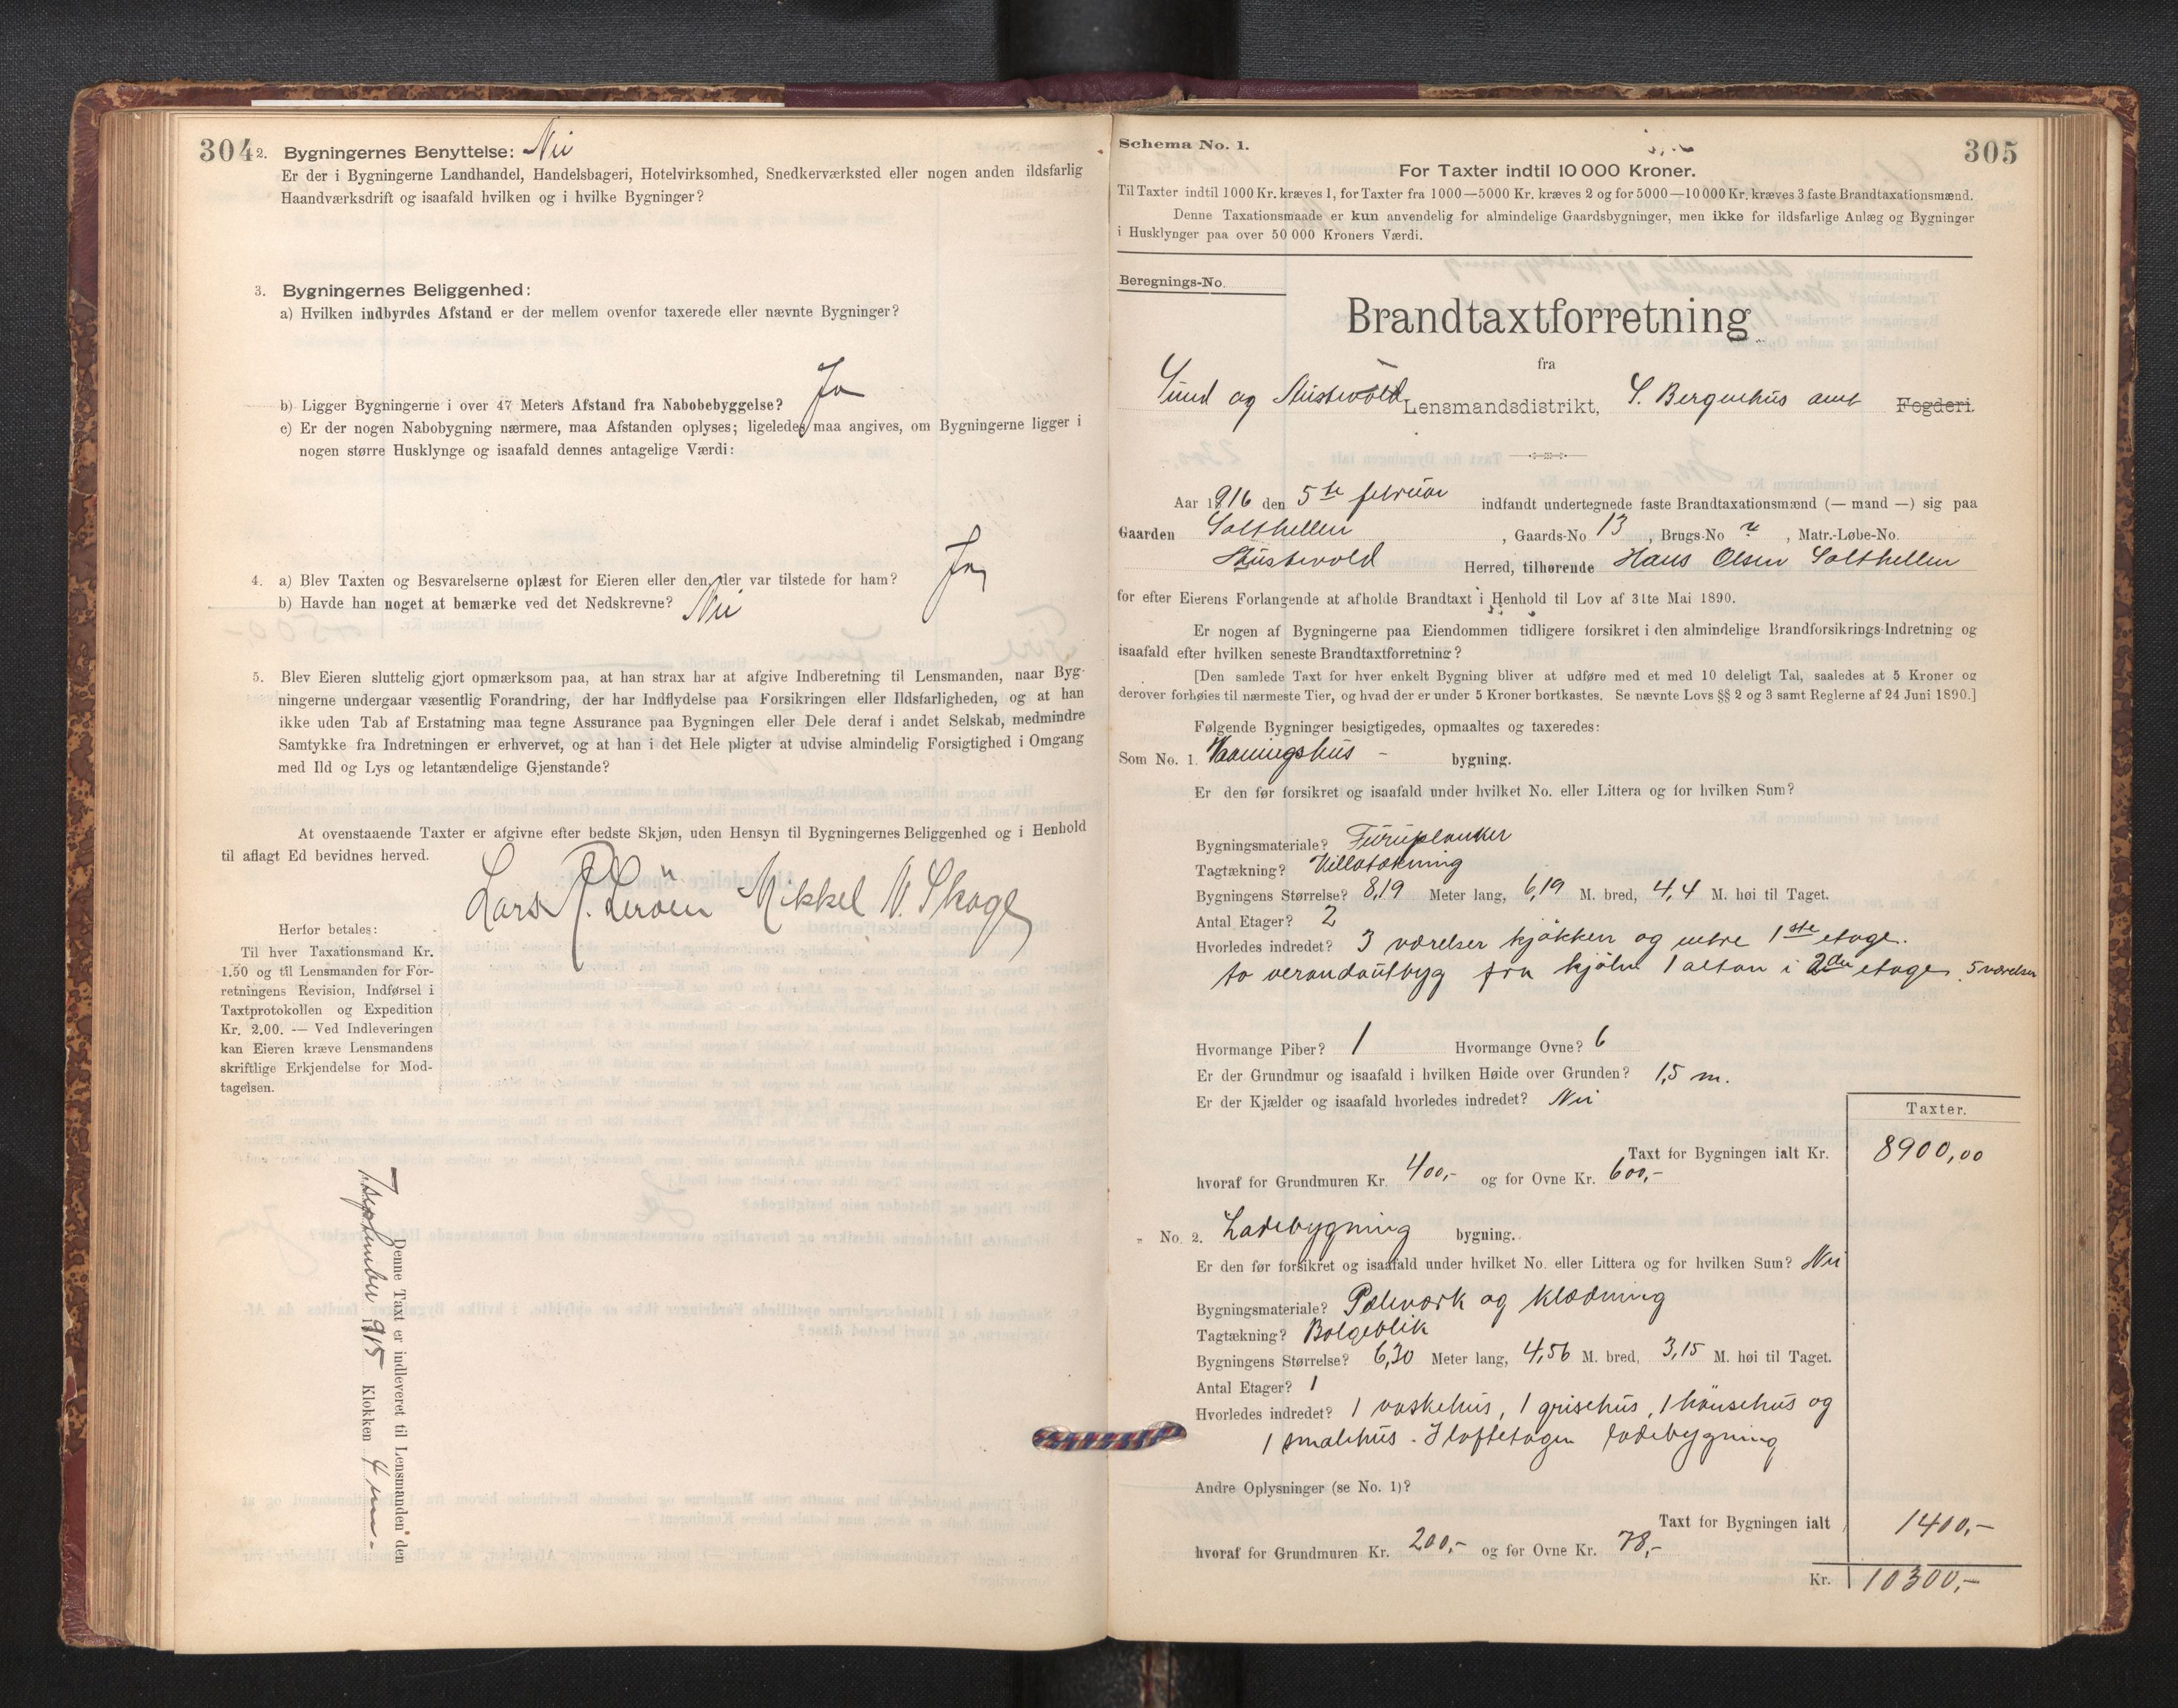 304
2. Bygningernes Benyttelse: Nei
Er der i Bygningerne Landhandel, Handelsbageri, Hotelvirksomhed, Snedkerværksted eller nogen anden ildsfarlig
Haandværksdrift og isaafald hvilken og i hvilke Bygninger?
3. Bygningernes Beliggenhed:
a) Hvilken indbyrdes Afstand er der mellem ovenfor taxerede eller nævnte Bygninger?
b) Ligger Bygningerne i over 47 Meters Afstand fra Nabobebyggelse? Ja
c) Er der nogen Nabobygning nærmere, maa Afstanden oplyses; ligeledes maa angives, om Bygningerne ligger i
nogen større Husklynge og isaafald dennes antagelige Værdi:
4. a) Blev Taxten og Besvarelserne oplæst for Eieren eller den, der var tilstede for ham? Ja
b) Havde han noget at bemærke ved det Nedskrevne? Nei
5. Blev Eieren sluttelig gjort opmærksom paa, at han strax har at afgive Indberetning til Lensmanden, naar Byg-
ningerne undergaar væsentlig Forandring, der har Indflydelse paa Forsikringen eller Ildsfarligheden, og at han
ikke uden Tab af Erstatning maa tegne Assurance paa Bygningen eller Dele deraf i andet Selskab, medmindre
Samtykke fra Indretningen er erhvervet, og at han i det Hele pligter at udvise almindelig Forsigtighed i Omgang
med Ild og Lys og letantændelige Gjenstande?
At ovenstaaende Taxter er afgivne efter bedste Skjøn, uden Hensyn til Bygningernes Beliggenhed og i Henhold
til aflagt Ed bevidnes herved.
Lars Lerøen Mikkel N. Skoge
Herfor betales:
Til hver Taxationsmand Kr.
1.50 og til Lensmanden for For-
retningens Revision, Indførsel i
Taxtprotokollen og Expedition
Kr. 2.00. — Ved Indleveringen
kan Eieren kræve Lensmandens
skriftlige Erkjendelse for Mod-
tagelsen.
Denne Taxt er indleveret til Lensmanden den
7 september 1915 Klokken 4
305
Schema No. 1.
For Taxter indtil 10 000 Kroner.
Til Taxter indtil 1000 Kr. kræves 1, for Taxter fra 1000—5000 Kr. kræves 2 og for 5000—10 000 Kr. kræves 3 faste Brandtaxationsmænd.
Denne Taxationsmaade er kun anvendelig for almindelige Gaardsbygninger, men ikke for ildsfarlige Anlæg og Bygninger
i Husklynger paa over 50 000 Kroners Værdi.
Beregnings-No.
Brandtaxtforretning
fra
Sund og Austevold Lensmandsdistrikt, S. Bergenhus amt Fogderi.
Aar 1916 den 5te februar indfandt undertegnede faste Brandtaxationsmænd (— mand —) sig paa
Gaarden Salthellen, Gaards-No 13, Brugs-No, Matr.-Løbe-No.
Austevold Herred, tilhørende Hans Olsen Salthellen
for efter Eierens Forlangende at afholde Brandtaxt i Henhold til Lov af 31te Mai 1890.
Er nogen af Bygningerne paa Eiendommen tidligere forsikret i den almindelige Brandforsikrings-Indretning og
isaafald efter hvilken seneste Brandtaxtforretning?
[Den samlede Taxt for hver enkelt Bygning bliver at udføre med et med 10 deleligt Tal, saaledes at 5 Kroner og
derover forhøies til nærmeste Tier, og hvad der er under 5 Kroner bortkastes. Se nævnte Lovs §§ 2 og 3 samt Reglerne af 24 Juni 1890.]
Følgende Bygninger besigtigedes, opmaaltes og taxeredes:
Som No. 1. Vaaningshus - bygning.
Er den før forsikret og isaafald under hvilket No. eller Littera og for hvilken Sum?
Bygningsmateriale? Furuplanker
Tagtækning? Villatækning
Bygningens Størrelse? 8,19 Meter lang, 6,19 M. bred, 4,4 M. høi til Taget.
Antal Etager? 2
Hvorledes indredet? 3 værelser kjøkken og entre 1ste etage.
to verandautbyg fra 1 altan i 2den etage 5 værelser
Hvormange Piber? 1 Hvormange Ovne? 6
Er der Grundmur og isaafald i hvilken Høide over Grunden? 1,5 m.
Er der Kjælder og isaafald hvorledes indredet? Nei
Taxter.
Taxt for Bygningen ialt Kr. 8900,00
hvoraf for Grundmuren Kr. 400,- og for Ovne Kr. 600,-
„ No. 2. Ladebygning bygning.
Er den før forsikret og isaafald under hvilket No. eller Littera og for hvilken Sum? Nei
Bygningsmateriale? Pæleværk og klædning
Tagtækning? Bølgeblik
Bygningens Størrelse? 6,30 Meter lang, 4,56 M. bred, 3,15 M. høi til Taget.
Antal Etager? 1
Hvorledes indredet? 1 vaskehus, 1 grisehus, 1 hønsehus og
1 smalehus. I loftetagen ladebygning
Andre Oplysninger (se No. 1)?
Taxt for Bygningen ialt 1400,-
hvoraf for Grundmuren Kr. 200,- og for Ovne Kr. 78,-
Kr. 10300,-